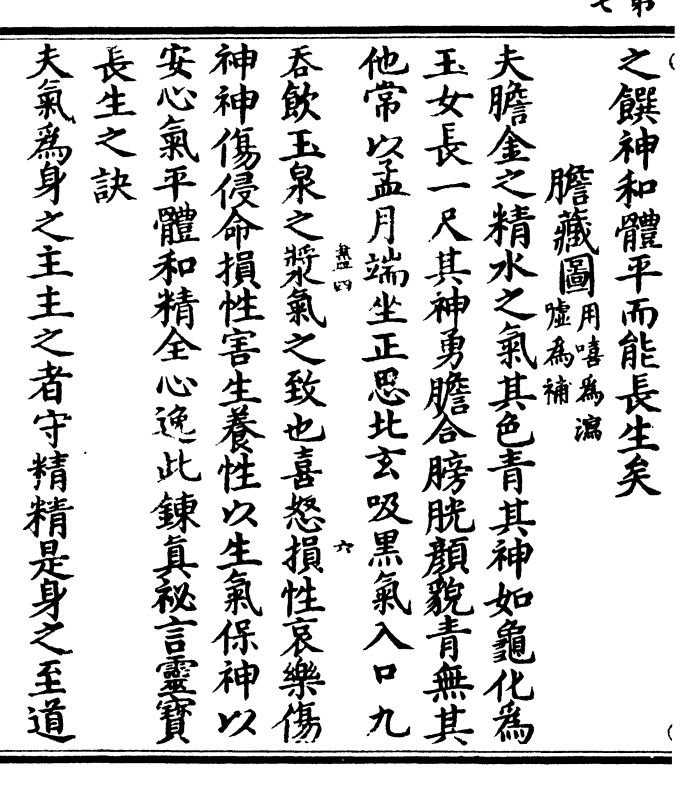 之饌神和體平而能長生矣
膽藏圖用嘻為瀉
噓為補
夫膽金之精水之氣其色青其神如龜化為
玉女長一尺其神勇膽合膀胱顏貌青無其
他常以孟月端坐正思北玄吸黑氣入口九
盡四
六
吞飲玉泉之漿氣之致也喜怒損性哀樂傷
神神傷侵命損性害生養性以生氣保神以
安心氣平體和精全心逸此鍊真祕言靈寶
長生之訣
夫氣為身之主主之者守精精是身之至道